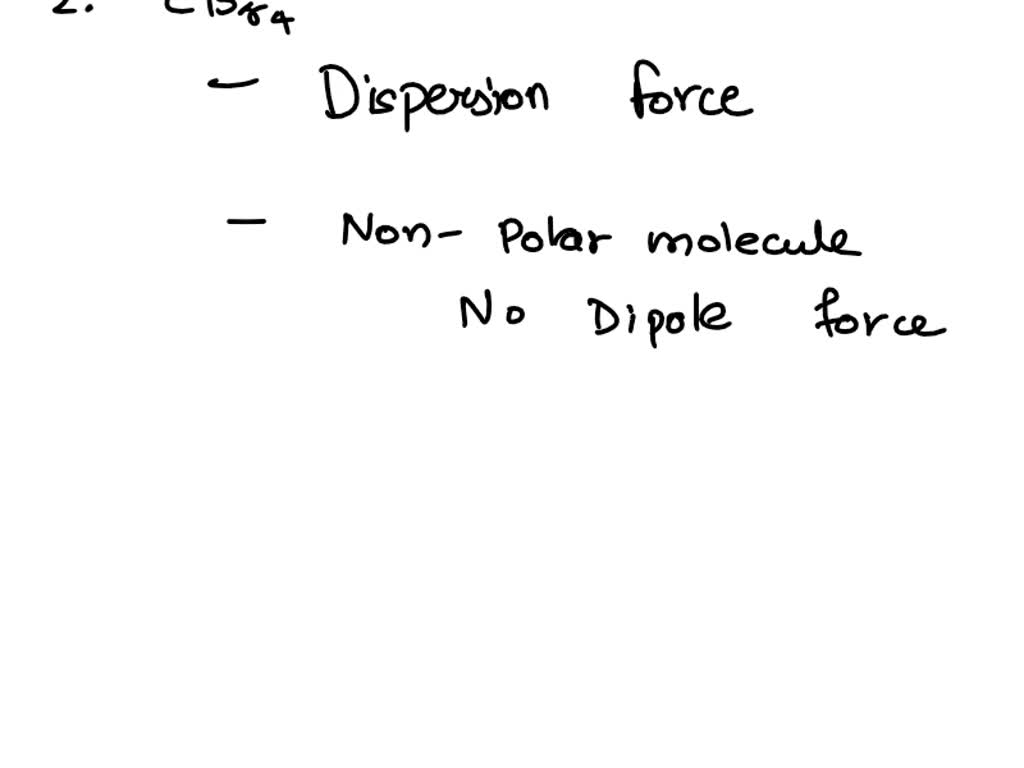 2. CBr4
– Dispersion force
– Non-Polar molecule
No Dipole force